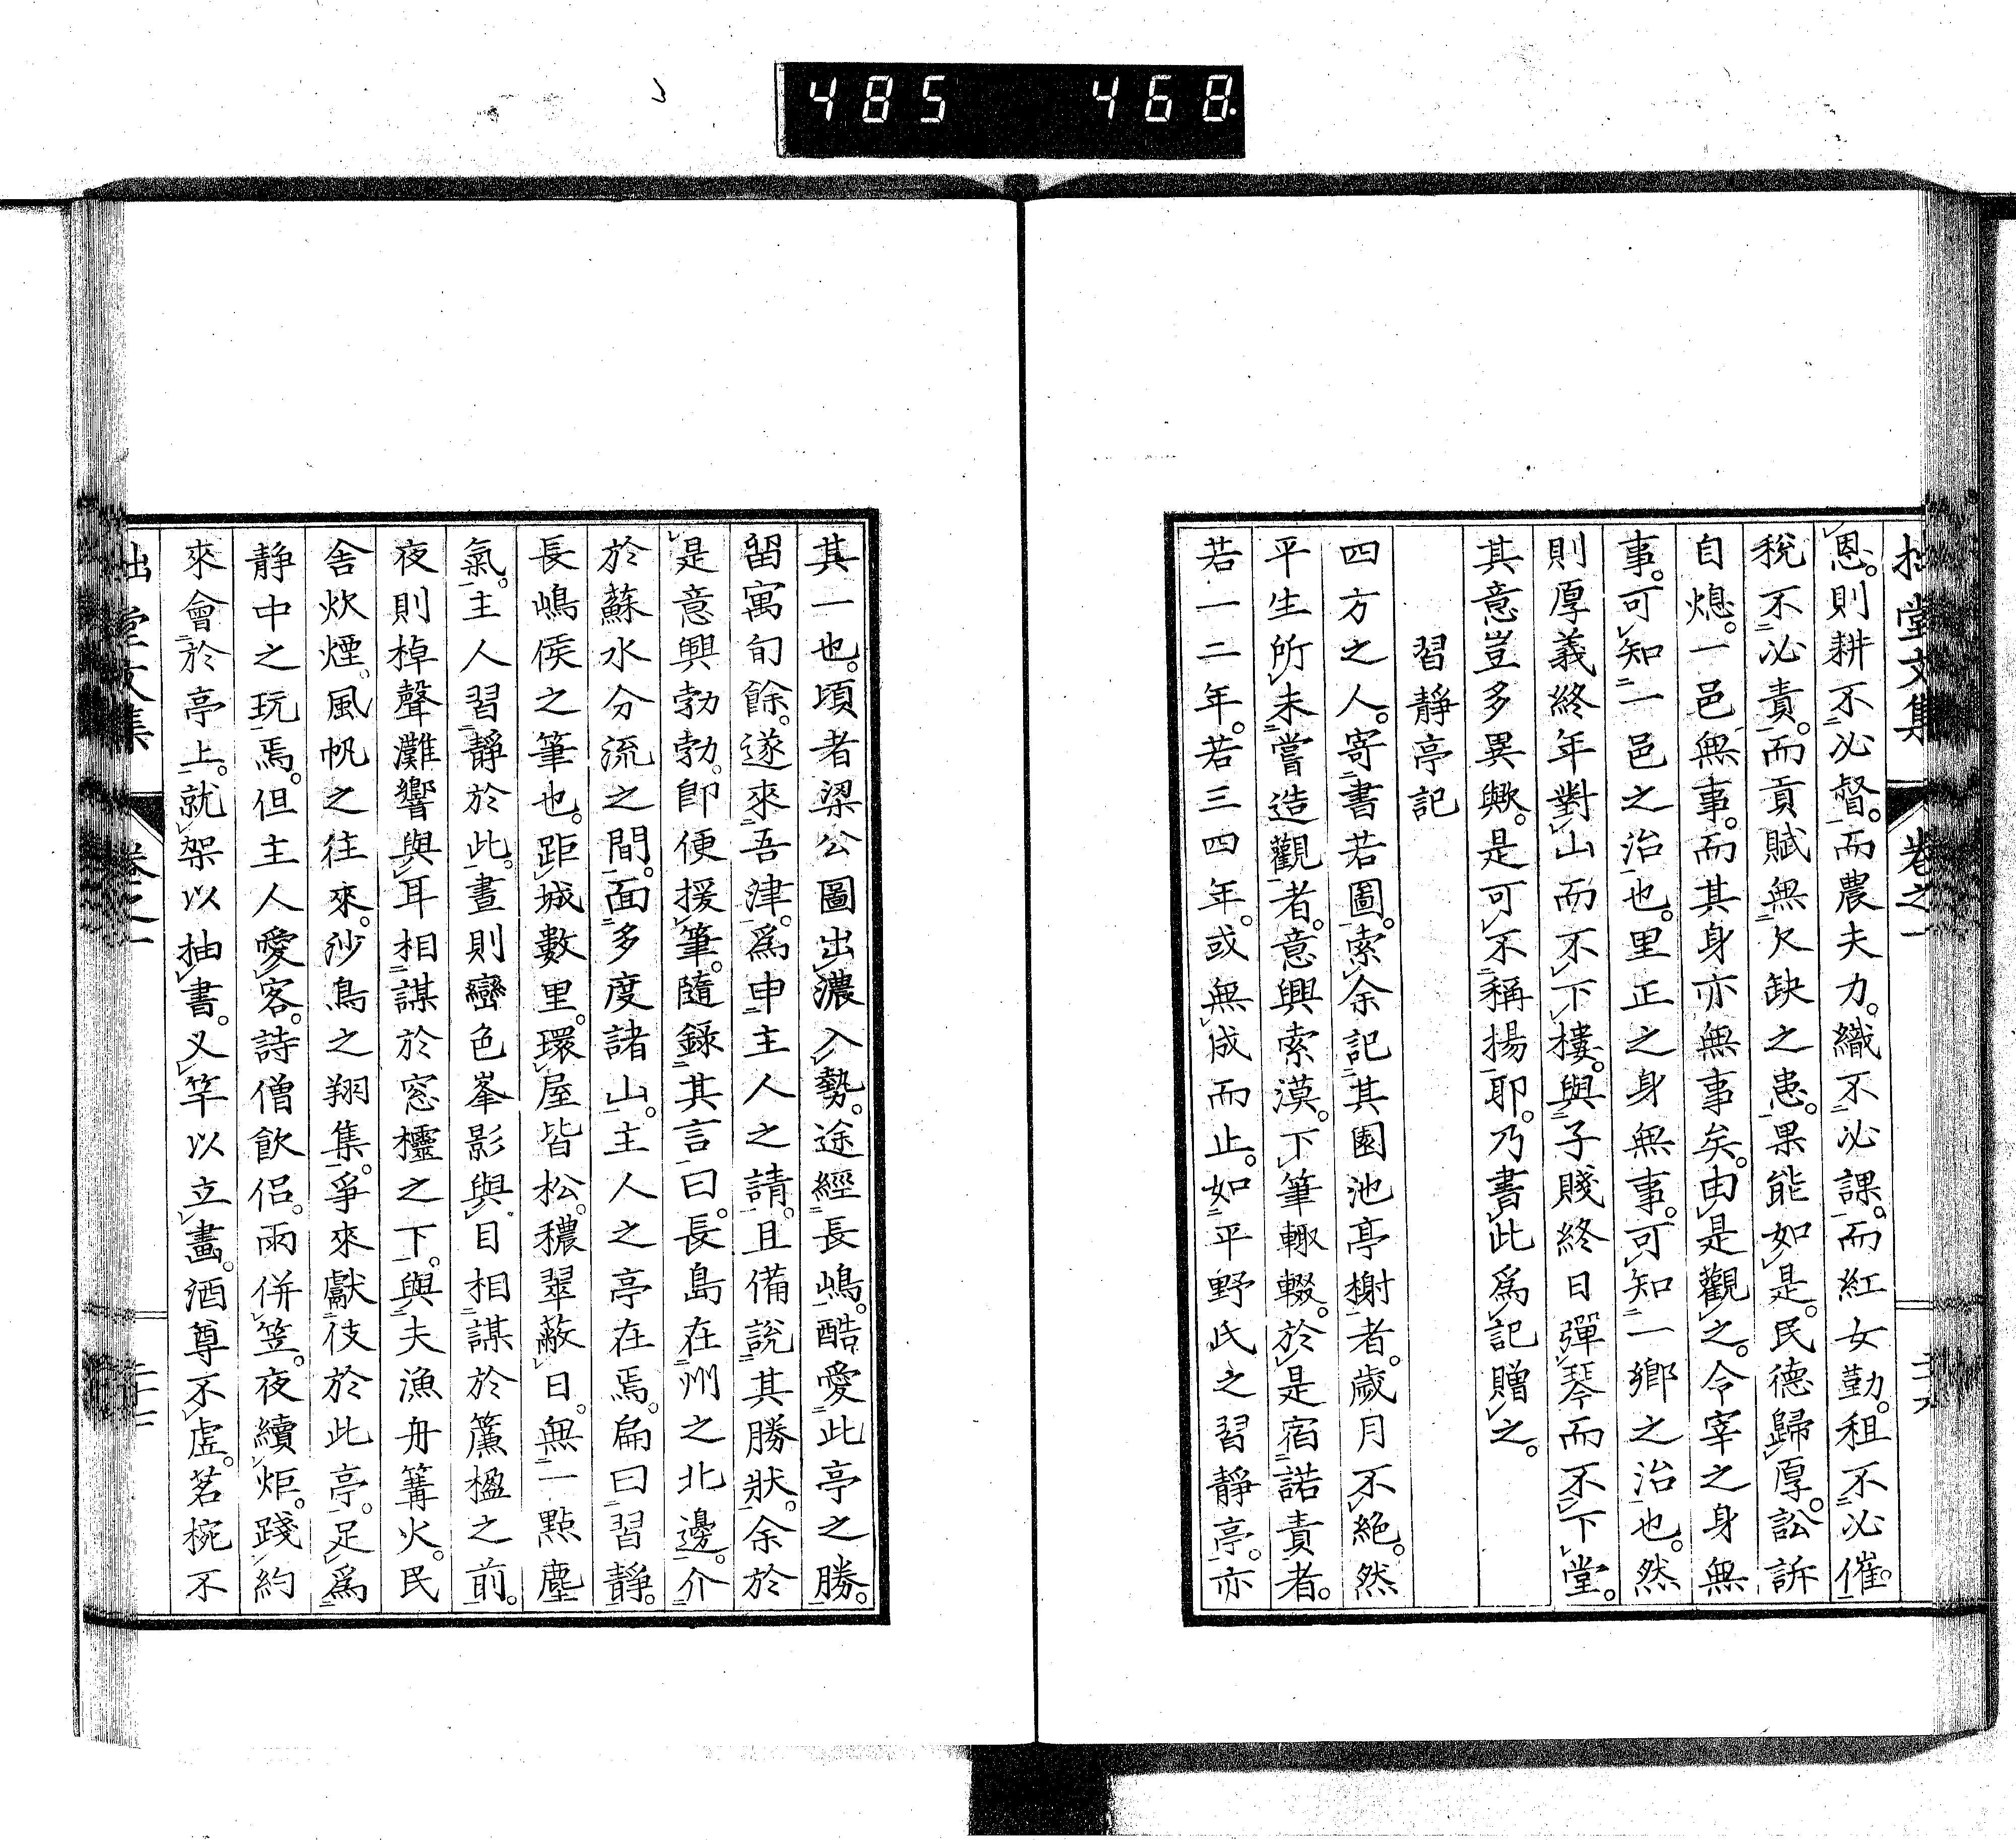 485 468
拙堂文集 卷之一
恩。則耕不必督。而農夫力。織不必課。而紅女勤。租不必催。
稅不必責。而貢賦無欠缺之患。果能如是。民德歸厚。訟訴
自熄。一邑無事。而其身亦無事矣。由是觀之。令宰之身無
事。可知一邑之治也。里正之身無事。可知一鄉之治也。然
則厚義終年對山而不下樓。與子賤終日彈琴而不下堂。
其意豈多異歟。是可不稱揚耶。乃書此爲記贈之。
習靜亭記
四方之人。寄書若圖。索余記其園池亭榭者。歲月不絕。然
平生所未嘗造觀者。意興索漠。下筆輙輟。於是宿諾責者。
若一二年。若三四年。或無成而止。如平野氏之習靜亭。亦
其一也。頃者梁公圖出濃入勢。途經長嶋。酷愛此亭之勝。
留寓旬餘。遂來吾津。爲申主人之請。且備說其勝狀。余於
是意興勃勃。卽便援筆。隨錄其言曰。長島在州之北邊。介
於蘇水分流之間。面多度諸山。主人之亭在焉。扁曰習靜。
長嶋侯之筆也。距城數里。環屋皆松。穠翠蔽日。無一點塵
氣。主人習靜於此。晝則巒色峯影與目相謀於簷楹之前。
夜則棹聲灘響與耳相謀於窓櫺之下。與夫漁舟篝火。民
舍炊煙。風帆之往來。沙鳥之翔集。爭來獻伎於此亭。足爲
靜中之玩焉。但主人愛客。詩僧飮侶。雨併笠。夜續炬。踐約
來會於亭上。就架以抽書。叉竿以立畫。酒尊不虛。茗椀不
拙堂文集 卷之一